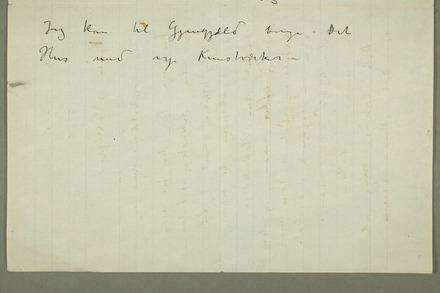 Jeg kan til Gjengjæld bringe Det
Hus med nye Kunstværker –